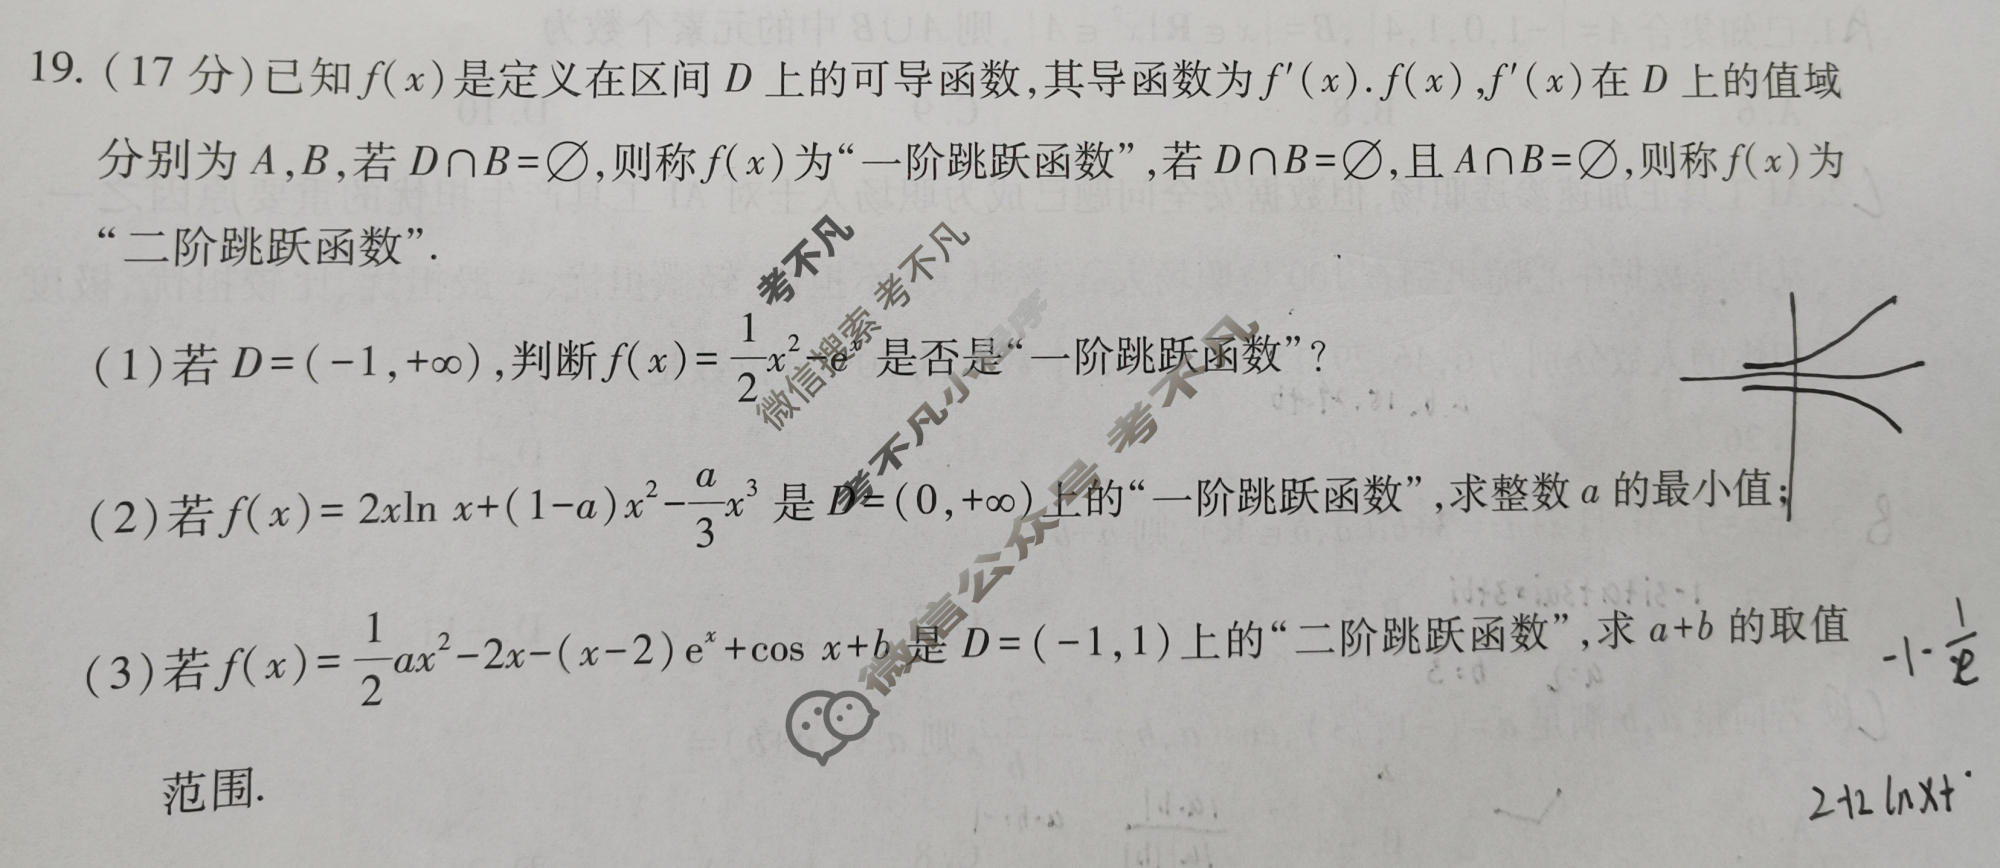 19. (17 分)已知 f(x)是定义在区间 D 上的可导函数,其导函数为 f′(x). f(x),f′(x)在 D 上的值域
分别为 A,B,若 D∩B=∅,则称 f(x)为“一阶跳跃函数”,若 D∩B=∅,且 A∩B=∅,则称 f(x)为
“二阶跳跃函数”.
(1)若 D=(-1,+∞),判断 f(x)=1/2x²-eˣ 是否是“一阶跳跃函数”?
(2)若 f(x)=2xln x+(1-a)x²-a/3x³ 是 D=(0,+∞)上的“一阶跳跃函数”,求整数 a 的最小值;
(3)若 f(x)=1/2ax²-2x-(x-2)eˣ+cos x+b 是 D=(-1,1)上的“二阶跳跃函数”,求 a+b 的取值
范围.
-1-1/e
2+2lnx+
考不凡
微信搜索 考不凡
考不凡小程序
微信公众号 考不凡